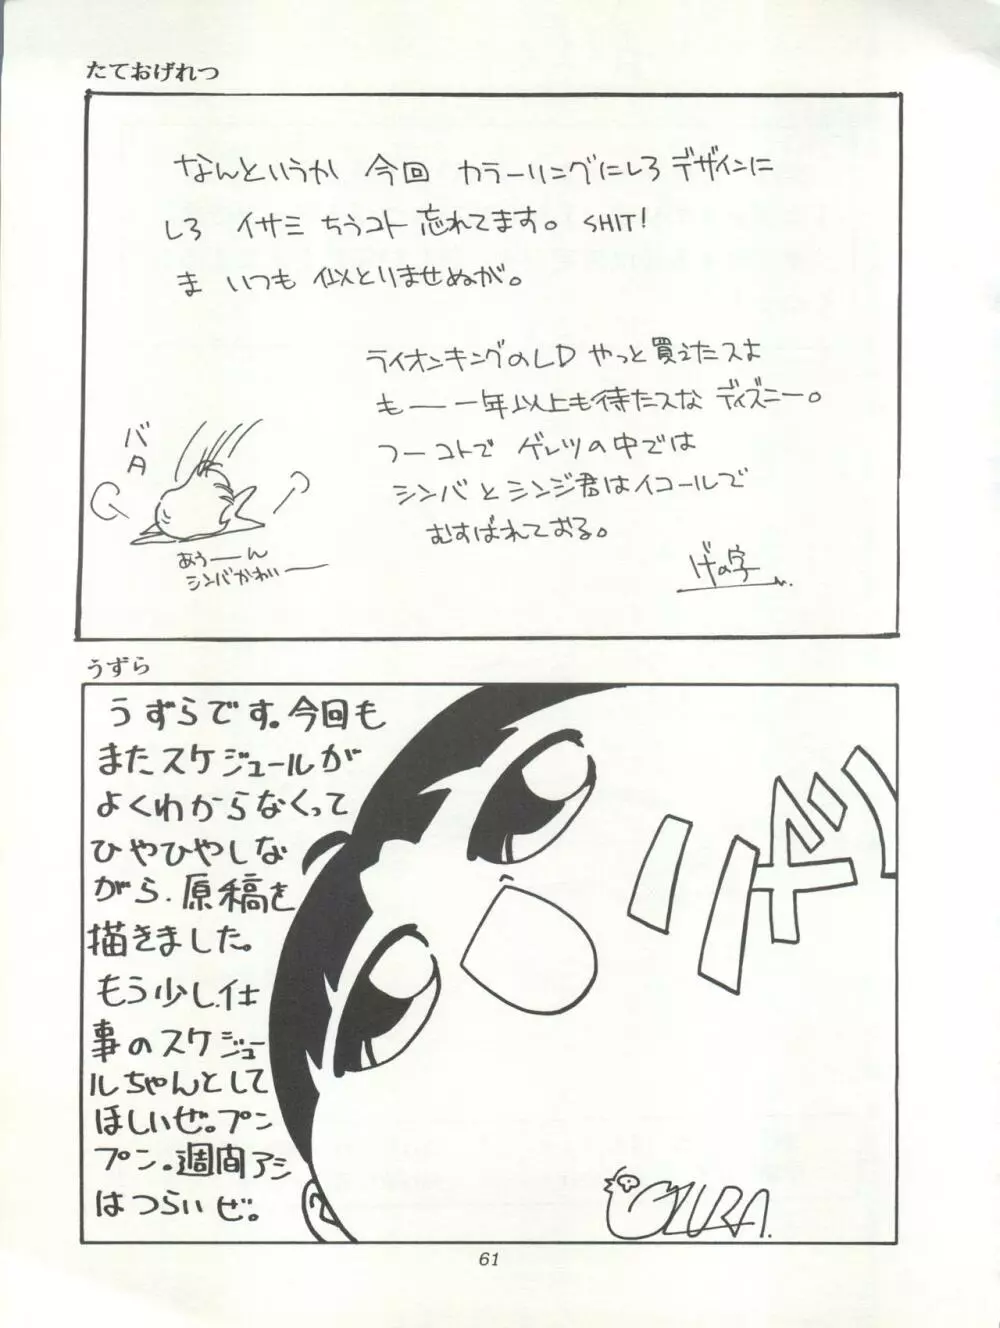 たておげれつ
なんというか 今回 カラーリングにしろ デザインに
しろ イサミ ちうコト 忘れてます。SHIT!
ま いつも 似とりませぬが。
ライオンキングのLD やっと買えたスよ
も――一年以上も待たスな ディズニー。
つーコトで ゲレツの中では
シンバとシンジ君はイコールで
むすばれておる。
バタ
あぅ――ん
シンバかわいー
げの字
うずら
うずらです。今回も
またスケジュールが
よくわからなくって
ひやひやしな
がら、原稿を
描きました。
もう少し、仕
事のスケジュー
ルちゃんとして
ほしいぜ。プン
プン。週間アシ
はつらいぜ。
ジャツ
UZURA.
61